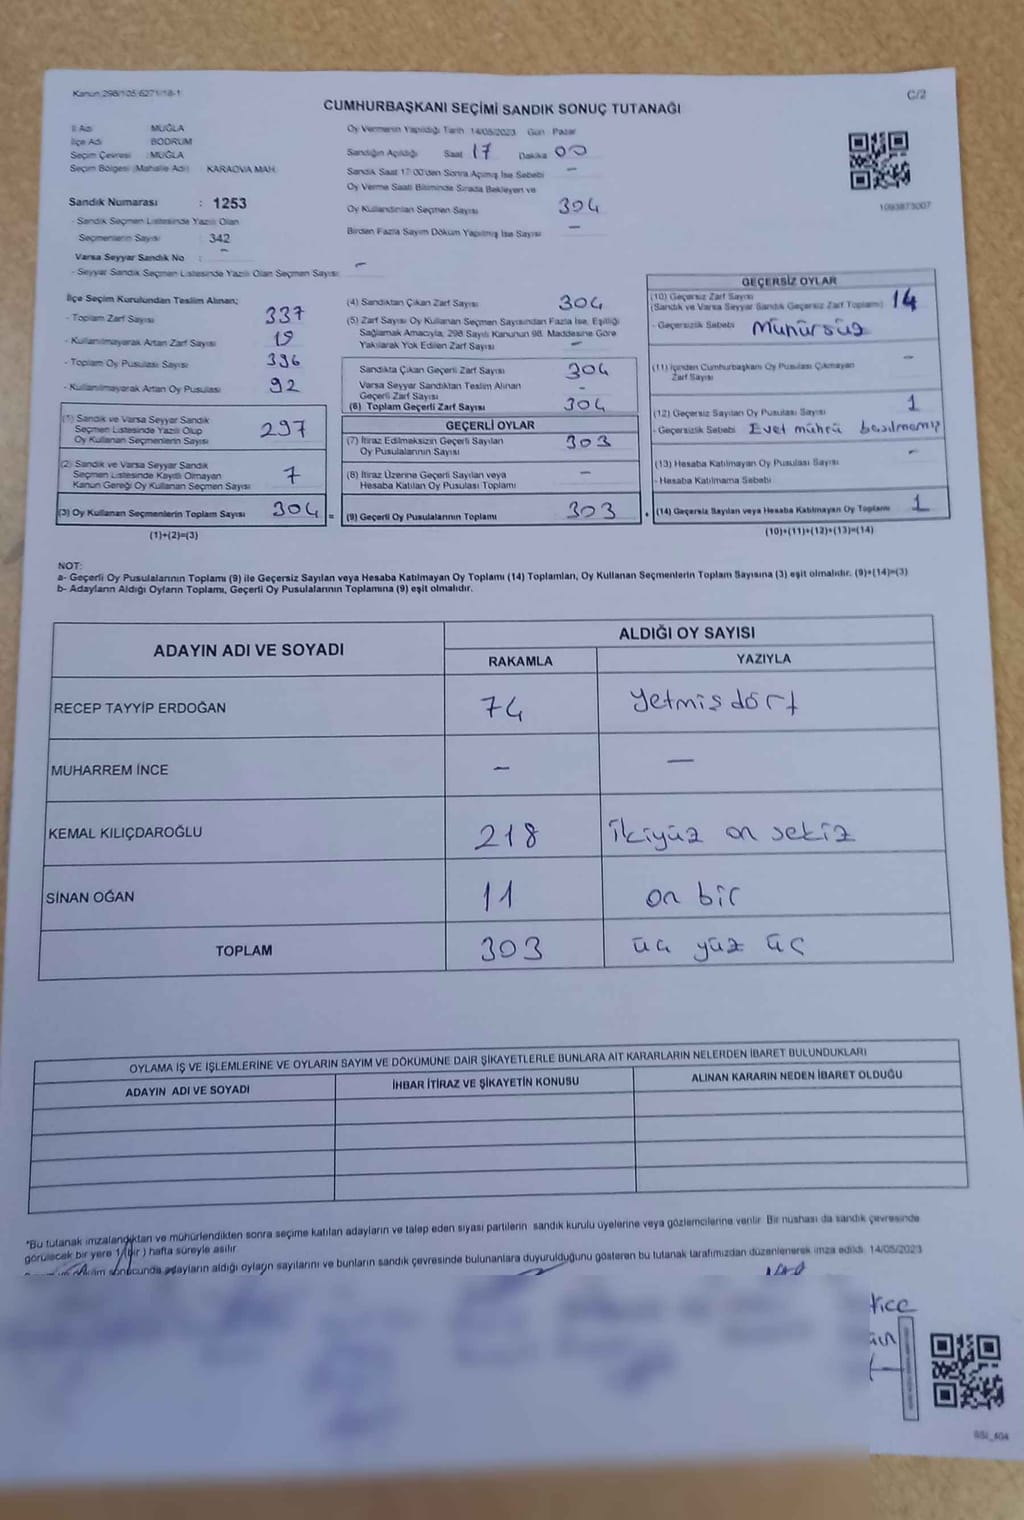 Kanun 298/105/6271/18-1
C/2
CUMHURBAŞKANI SEÇİMİ SANDIK SONUÇ TUTANAĞI
İl Adı MUĞLA
İlçe Adı BODRUM
Seçim Çevresi : MUĞLA
Seçim Bölgesi (Mahalle Adı) : KARAOVA MAH.
Sandık Numarası : 1253
- Sandık Seçmen Listesinde Yazılı Olan
Seçmenlerin Sayısı : 342
Varsa Seyyar Sandık No : -
- Seyyar Sandık Seçmen Listesinde Yazılı Olan Seçmen Sayısı: -
Oy Vermenin Yapıldığı Tarih 14/05/2023 Gün Pazar
Sandığın Açıldığı Saat 17 Dakika 00
Sandık Saat 17:00'den Sonra Açılmış İse Sebebi -
Oy Verme Saati Bitiminde Sırada Bekleyen ve
Oy Kullandırılan Seçmen Sayısı 304
Birden Fazla Sayım Döküm Yapılmış İse Sayısı -
1093873007
İlçe Seçim Kurulundan Teslim Alınan;
- Toplam Zarf Sayısı 337
- Kullanılmayarak Artan Zarf Sayısı 19
- Toplam Oy Pusulası Sayısı 396
- Kullanılmayarak Artan Oy Pusulası 92
(1) Sandık ve Varsa Seyyar Sandık
Seçmen Listesinde Yazılı Olup
Oy Kullanan Seçmenlerin Sayısı 297
(2) Sandık ve Varsa Seyyar Sandık
Seçmen Listesinde Kayıtlı Olmayan
Kanun Gereği Oy Kullanan Seçmen Sayısı 7
(3) Oy Kullanan Seçmenlerin Toplam Sayısı 304 =
(1)+(2)=(3)
(4) Sandıktan Çıkan Zarf Sayısı 304
(5) Zarf Sayısı Oy Kullanan Seçmen Sayısından Fazla İse, Eşitliği
Sağlamak Amacıyla, 298 Sayılı Kanunun 98. Maddesine Göre
Yakılarak Yok Edilen Zarf Sayısı -
Sandıkta Çıkan Geçerli Zarf Sayısı 304
Varsa Seyyar Sandıktan Teslim Alınan
Geçerli Zarf Sayısı -
(6) Toplam Geçerli Zarf Sayısı 304
GEÇERLİ OYLAR
(7) İtiraz Edilmeksizin Geçerli Sayılan
Oy Pusulalarının Sayısı 303
(8) İtiraz Üzerine Geçerli Sayılan veya
Hesaba Katılan Oy Pusulası Toplamı -
(9) Geçerli Oy Pusulalarının Toplamı 303 +
GEÇERSİZ OYLAR
(10) Geçersiz Zarf Sayısı
(Sandık ve Varsa Seyyar Sandık Geçersiz Zarf Toplamı) 14
- Geçersizlik Sebebi Mühürsüz
(11) İçinden Cumhurbaşkanı Oy Pusulası Çıkmayan
Zarf Sayısı -
(12) Geçersiz Sayılan Oy Pusulası Sayısı 1
- Geçersizlik Sebebi Evet mührü basılmamış
(13) Hesaba Katılmayan Oy Pusulası Sayısı -
- Hesaba Katılmama Sebebi
(14) Geçersiz Sayılan veya Hesaba Katılmayan Oy Toplamı 1
(10)+(11)+(12)+(13)=(14)
NOT:
a- Geçerli Oy Pusulalarının Toplamı (9) ile Geçersiz Sayılan veya Hesaba Katılmayan Oy Toplamı (14) Toplamları, Oy Kullanan Seçmenlerin Toplam Sayısına (3) eşit olmalıdır. (9)+(14)=(3)
b- Adayların Aldığı Oyların Toplamı, Geçerli Oy Pusulalarının Toplamına (9) eşit olmalıdır.
ADAYIN ADI VE SOYADI
ALDIĞI OY SAYISI
RAKAMLA YAZIYLA
RECEP TAYYİP ERDOĞAN 74 Yetmişdört
MUHARREM İNCE - -
KEMAL KILIÇDAROĞLU 218 İkiyüz on sekiz
SİNAN OĞAN 11 on bir
TOPLAM 303 üç yüz üç
OYLAMA İŞ VE İŞLEMLERİNE VE OYLARIN SAYIM VE DÖKÜMÜNE DAİR ŞİKAYETLERLE BUNLARA AİT KARARLARIN NELERDEN İBARET BULUNDUKLARI
ADAYIN ADI VE SOYADI İHBAR İTİRAZ VE ŞİKAYETİN KONUSU ALINAN KARARIN NEDEN İBARET OLDUĞU
*Bu tutanak imzalandıktan ve mühürlendikten sonra seçime katılan adayların ve talep eden siyasi partilerin sandık kurulu üyelerine veya gözlemcilerine verilir. Bir nüshası da sandık çevresinde
görülecek bir yere 1 (bir) hafta süreyle asılır.
sonucunda adayların aldığı oyların sayılarını ve bunların sandık çevresinde bulunanlara duyurulduğunu gösteren bu tutanak tarafımızdan düzenlenerek imza edildi. 14/05/2023